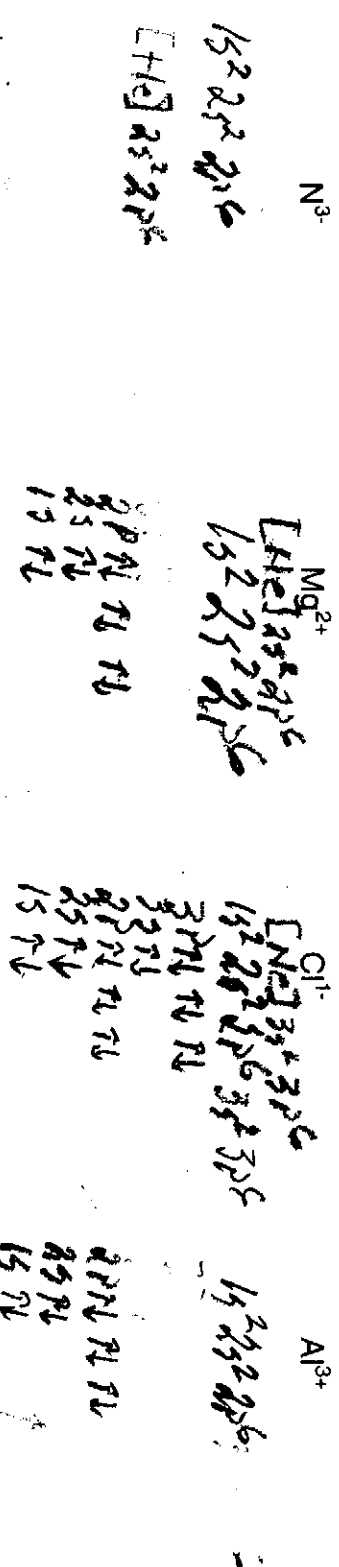 N³⁻
1s² 2s² 2p⁶
[He] 2s² 2p⁶
Mg²⁺
[He] 2s² 2p⁶
1s² 2s² 2p⁶
2p ↑↓ ↑↓ ↑↓
2s ↑↓
1s ↑↓
Cl¹⁻
[Ne] 3s² 3p⁶
1s² 2s² 2p⁶ 3s² 3p⁶
3p ↑↓ ↑↓ ↑↓
3s ↑↓
2p ↑↓ ↑↓ ↑↓
2s ↑↓
1s ↑↓
Al³⁺
1s² 2s² 2p⁶
2p ↑↓ ↑↓ ↑↓
2s ↑↓
1s ↑↓